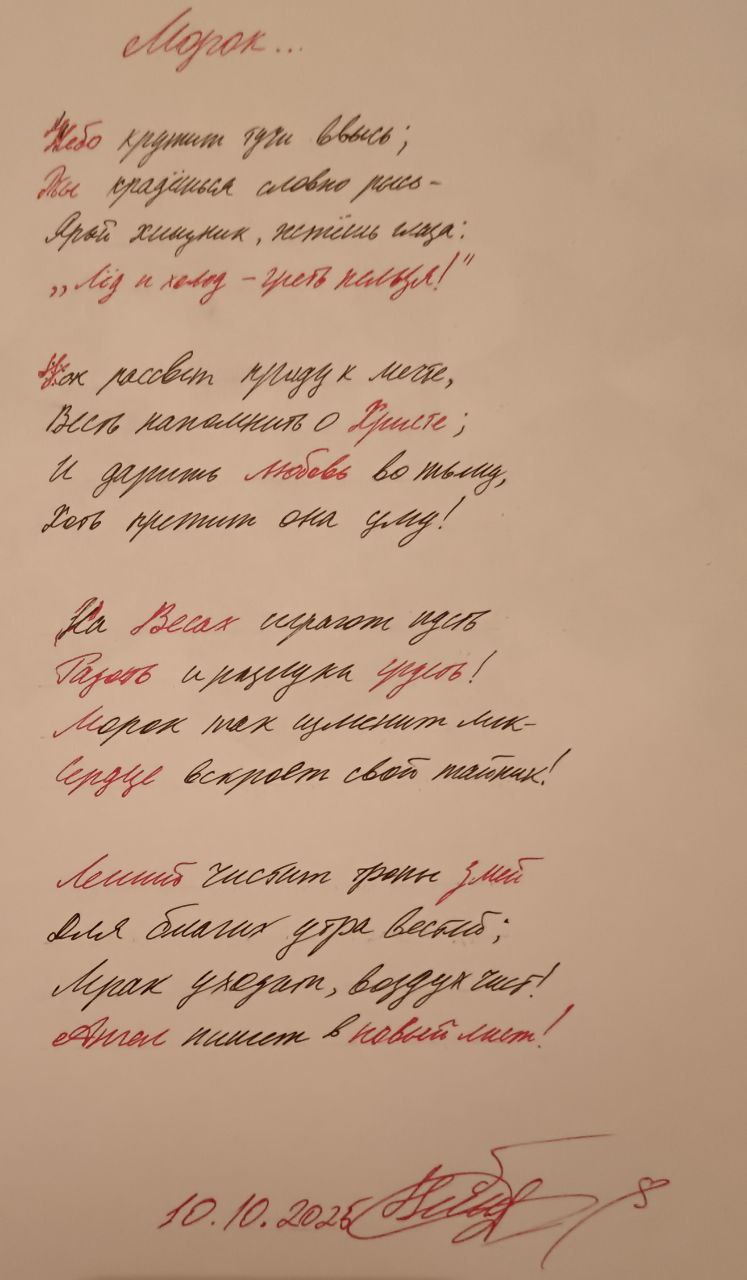 Морок...
Небо кружит тучи ввысь;
Ты крадёшься словно рысь-
Ярый хищник, жжёшь глаза:
„Лёд и холод - греть нельзя!"
Как рассвет приду к мечте,
Весть напомнить о Христе;
И дарить любовь во тьму,
Хоть претит она уму!
На Весах играют пусть
Радость и разлуки грусть!
Морок так изменит лик-
Сердце вскроет свой тайник!
Леший чистит тропы змей
Для благих утра вестей;
Мрак уходит, воздух чист!
Ангел пишет в новый лист!
10.10.2025